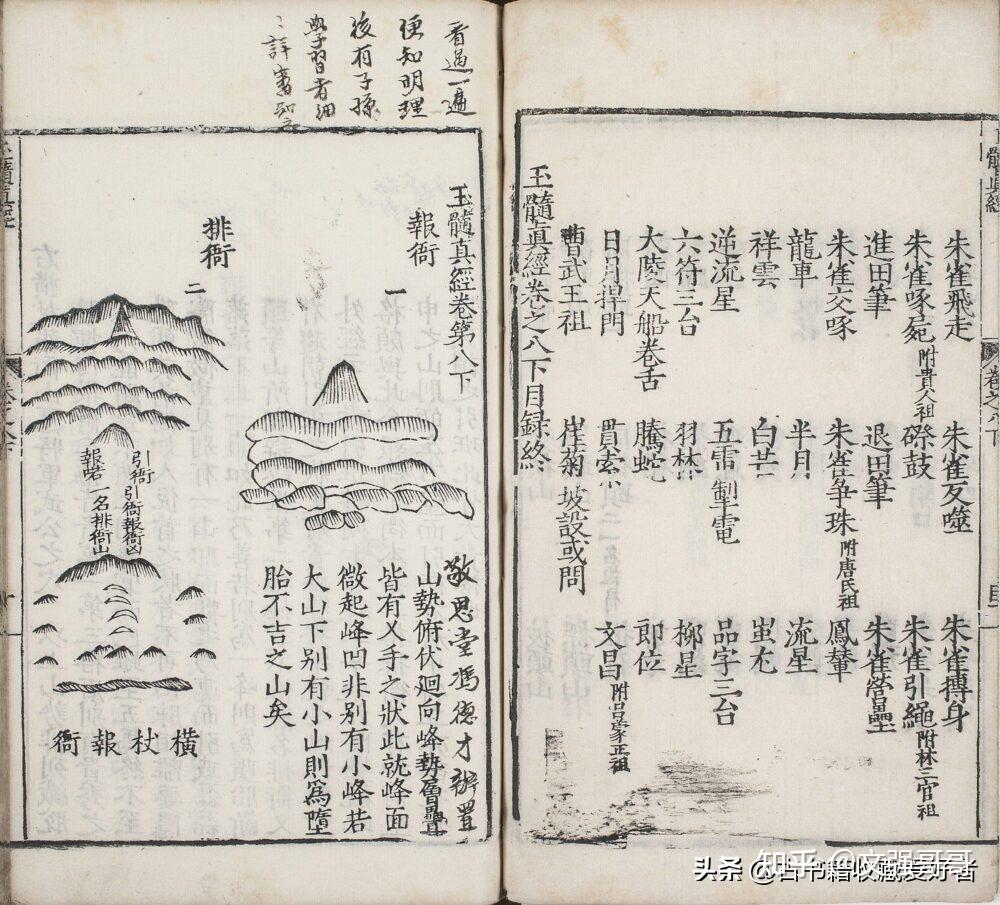 朱雀飛走 朱雀反噬 朱雀摶身
朱雀啄菀 附貴人祖 磔鼓 朱雀引繩 附林三官祖
進田筆 退田筆 朱雀營壘
朱雀交啄 朱雀爭珠 附唐氏祖 鳳輦
龍車 半月 流星
祥雲 白芒 蚩尤
逆流星 五雷掣電 品字三台
六符三台 羽林 柳星
大陸天船卷舌 騰蛇 郎位
日月捍門 貫索 文昌 附呂蒙正祖
曹武王祖 崔菊坡設或問
玉髓眞經卷之八下目録終
看過一遍
便知明理
後有子孫
學習者細
玉髓真經卷第八下
敬思堂馮德才辦置
報衙
一
山勢俯伏廻向峰勢魯疊
皆有乂手之狀此就峰面
微起峰凹非别有小峰若
大山下别有小山則為墮
胎不吉之山矣
排衙
二
引衙
引衙報衙凶
報君一名排衙山
橫杖報衙
玉髓真經
头条 @古书籍收藏爱好者
知乎 @文强哥哥